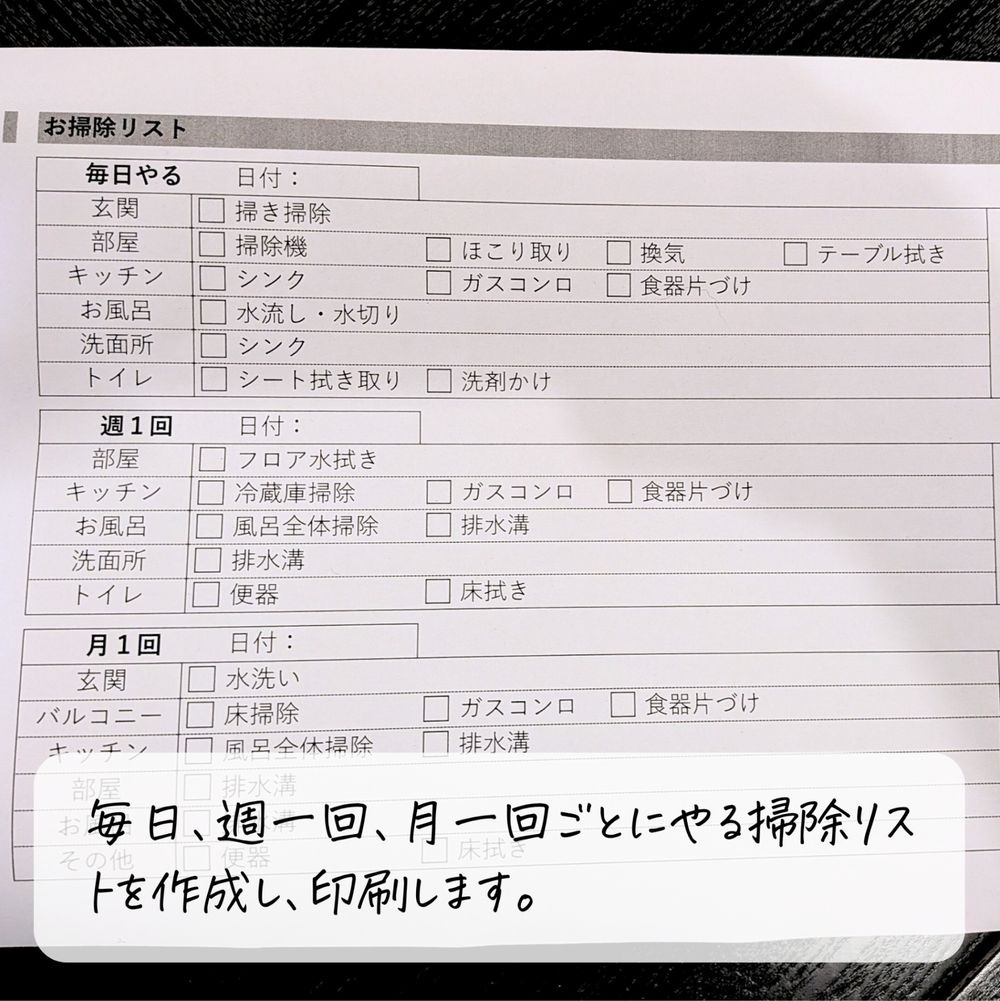 お掃除リスト
毎日やる 日付：
玄関 掃き掃除
部屋 掃除機 ほこり取り 換気 テーブル拭き
キッチン シンク ガスコンロ 食器片づけ
お風呂 水流し・水切り
洗面所 シンク
トイレ シート拭き取り 洗剤かけ
週1回 日付：
部屋 フロア水拭き
キッチン 冷蔵庫掃除 ガスコンロ 食器片づけ
お風呂 風呂全体掃除 排水溝
洗面所 排水溝
トイレ 便器 床拭き
月1回 日付：
玄関 水洗い
バルコニー 床掃除 ガスコンロ 食器片づけ
キッチン 風呂全体掃除 排水溝
部屋 排水溝
その他 便器 床拭き
毎日、週一回、月一回ごとにやる掃除リス
トを作成し、印刷します。